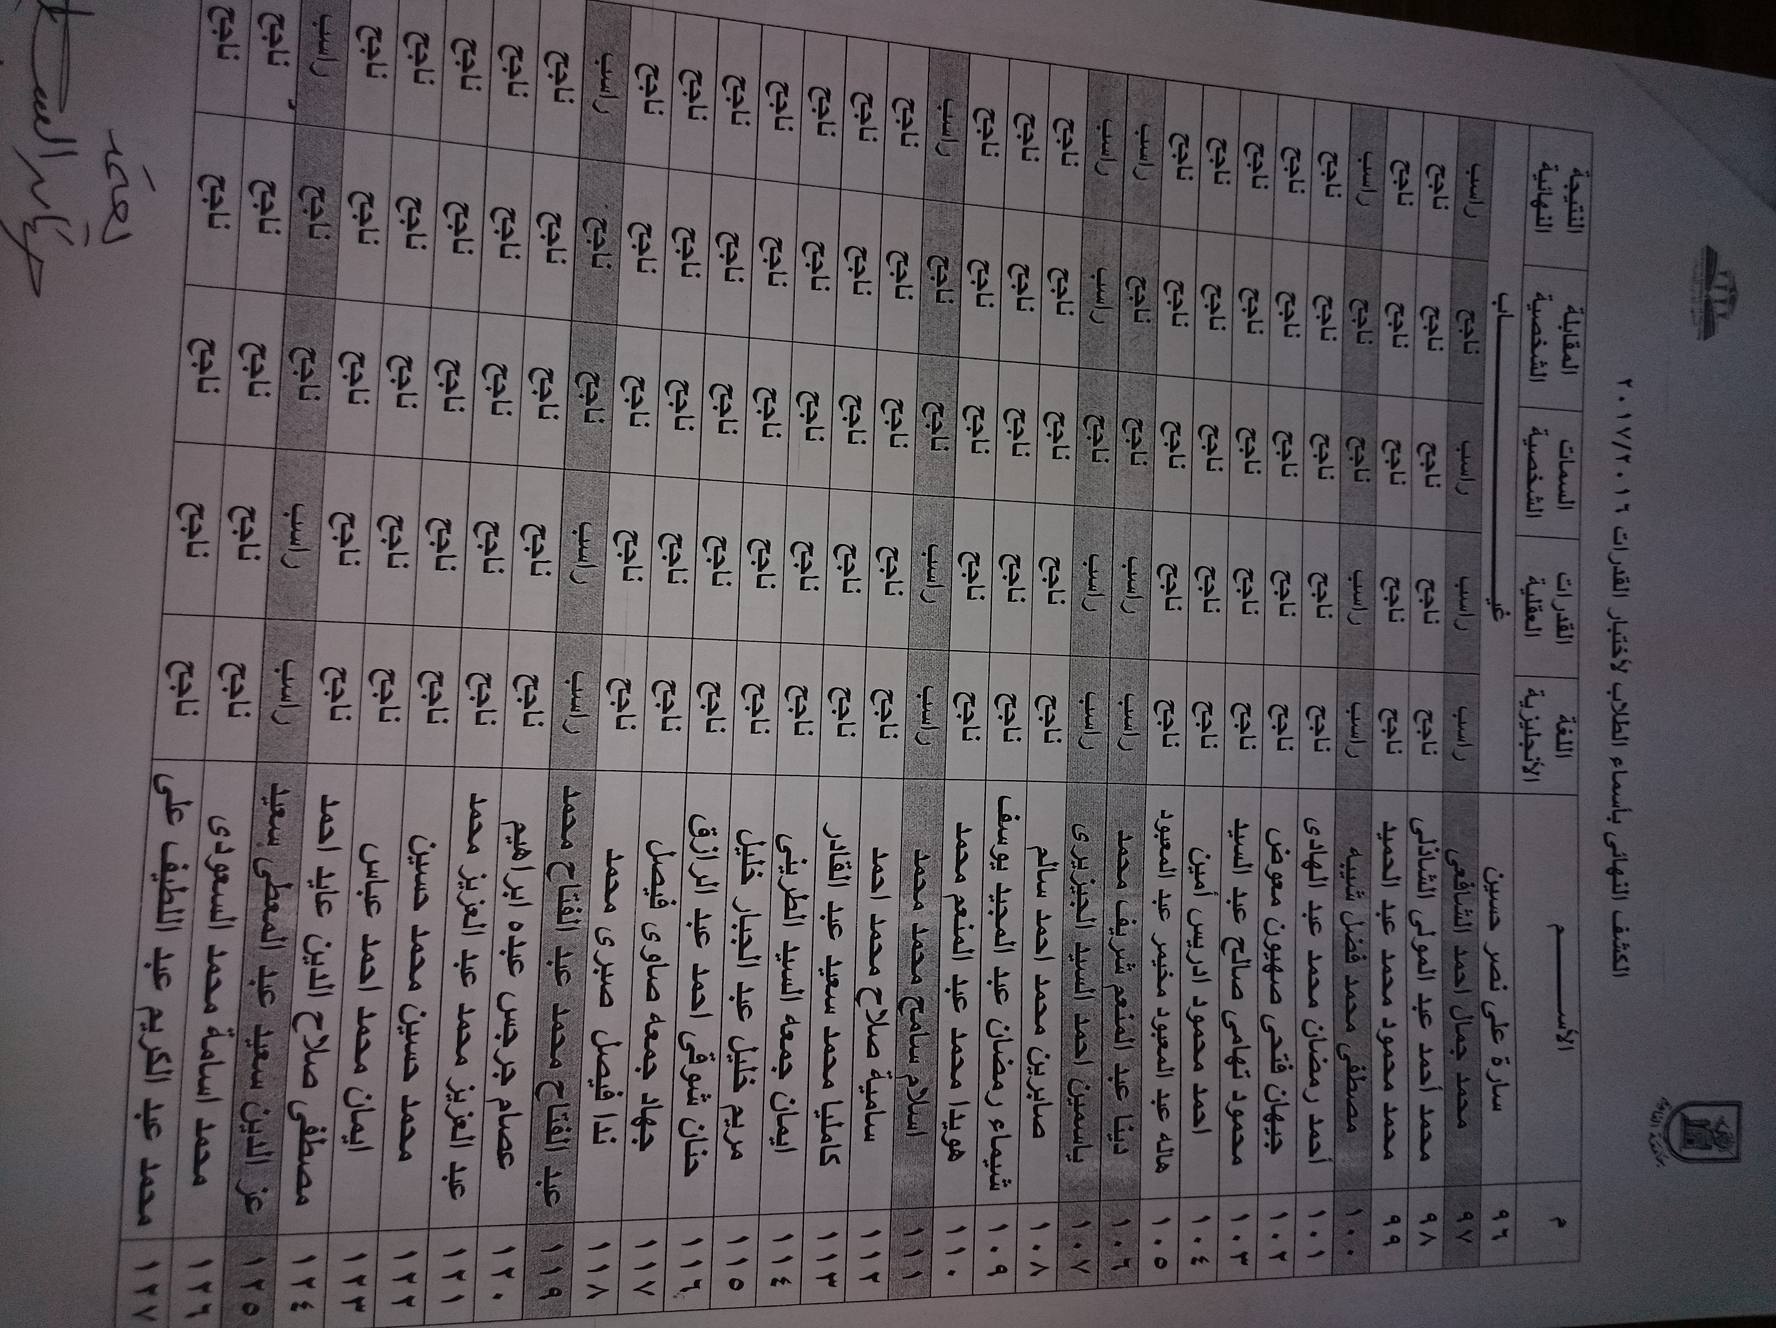 جامعة القاهرة
الكشف النهائى بأسماء الطلاب لأختبار القدرات ٢٠١٧/٢٠١٦
م الأســـــم اللغة الأنجليزية القدرات العقلية السمات الشخصية المقابلة الشخصية النتيجة النهائية
٩٦ سارة على نصر حسين غيـــــــــاب
٩٧ محمد جمال احمد الشافعى راسب راسب راسب ناجح راسب
٩٨ محمد أحمد عبد المولى الشاذلى ناجح ناجح ناجح ناجح ناجح
٩٩ محمد محمود محمد عبد الحميد ناجح ناجح ناجح ناجح ناجح
١٠٠ مصطفى محمد فضل شبيه راسب راسب ناجح ناجح راسب
١٠١ أحمد رمضان محمد عبد الهادى ناجح ناجح ناجح ناجح ناجح
١٠٢ جيهان فتحى صهيون معوض ناجح ناجح ناجح ناجح ناجح
١٠٣ محمود تهامى صالح عبد السيد ناجح ناجح ناجح ناجح ناجح
١٠٤ احمد محمود ادريس أمين ناجح ناجح ناجح ناجح ناجح
١٠٥ هاله عبد المعبود مخيمر عبد المعبود ناجح ناجح ناجح ناجح ناجح
١٠٦ دينا عبد المنعم شريف محمد راسب راسب ناجح ناجح راسب
١٠٧ ياسمين احمد السيد الجيزيرى راسب راسب ناجح راسب راسب
١٠٨ صابرين محمد احمد سالم ناجح ناجح ناجح ناجح ناجح
١٠٩ شيماء رمضان عبد المجيد يوسف ناجح ناجح ناجح ناجح ناجح
١١٠ هويدا محمد عبد المنعم محمد ناجح ناجح ناجح ناجح ناجح
١١١ اسلام سامح محمد محمد راسب راسب ناجح ناجح راسب
١١٢ سامية صلاح محمد احمد ناجح ناجح ناجح ناجح ناجح
١١٣ كامليا محمد سعيد عبد القادر ناجح ناجح ناجح ناجح ناجح
١١٤ ايمان جمعه السيد الطرينى ناجح ناجح ناجح ناجح ناجح
١١٥ مريم خليل عبد الجبار خليل ناجح ناجح ناجح ناجح ناجح
١١٦ حنان شوقى احمد عبد الرازق ناجح ناجح ناجح ناجح ناجح
١١٧ جهاد جمعه صاوى فيصل ناجح ناجح ناجح ناجح ناجح
١١٨ ندا فيصل صبرى محمد ناجح ناجح ناجح ناجح ناجح
١١٩ عبد الفتاح محمد عبد الفتاح محمد راسب راسب ناجح ناجح راسب
١٢٠ عصام جرجس عبده ابراهيم ناجح ناجح ناجح ناجح ناجح
١٢١ عبد العزيز محمد عبد العزيز محمد ناجح ناجح ناجح ناجح ناجح
١٢٢ محمد حسين محمد حسين ناجح ناجح ناجح ناجح ناجح
١٢٣ ايمان محمد احمد عباس ناجح ناجح ناجح ناجح ناجح
١٢٤ مصطفى صلاح الدين عابد احمد ناجح ناجح ناجح ناجح ناجح
١٢٥ عز الدين سعيد عبد المعطى سعيد راسب راسب ناجح ناجح راسب
١٢٦ محمد اسامة محمد السعودى ناجح ناجح ناجح ناجح ناجح
١٢٧ محمد عبد الكريم عبد اللطيف على ناجح ناجح ناجح ناجح ناجح